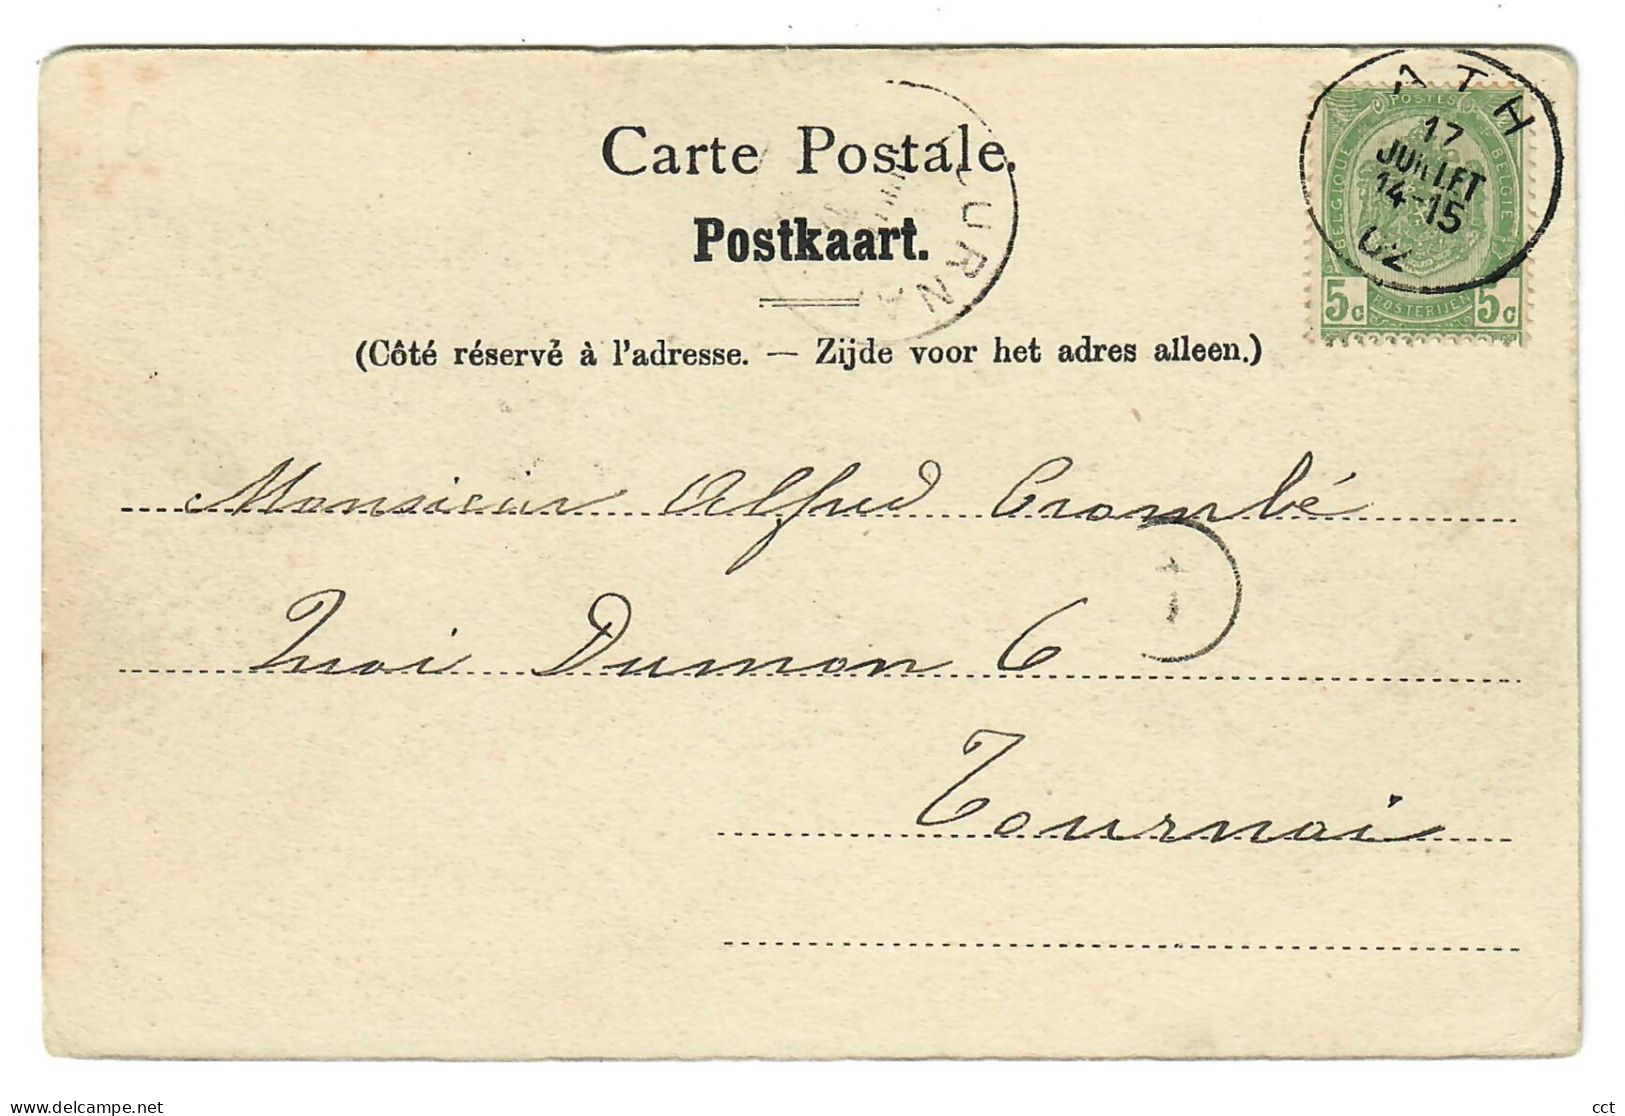 Carte Postale.
Postkaart.
(Côté réservé à l'adresse. — Zijde voor het adres alleen.)
ATH
17
JUILLET
14-15
02
POSTES
BELGIQUE
BELGIE
5c POSTERIJEN 5c
OURNA
Monsieur Alfred Crombé
Quai Dumon 6
1
Tournai
delcampe.net
cct